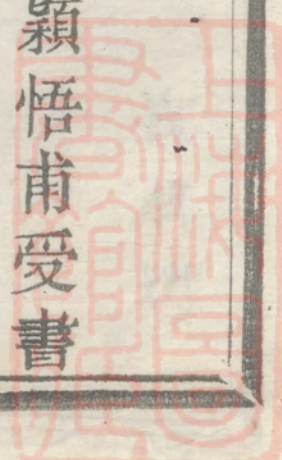 穎悟甫受書